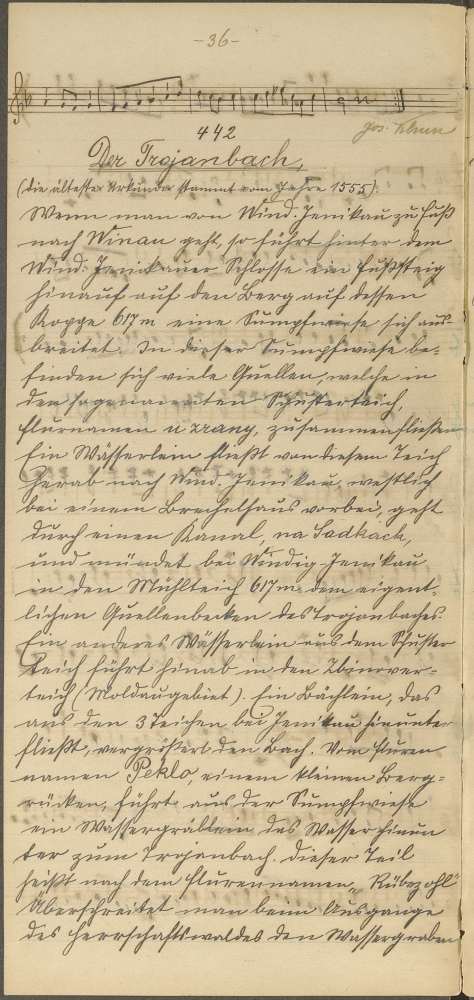 -36-
442
Jos. Klnun
Der Trojanbach,
(die älteste Urkunde stammt vom Jahre 1555)
Wenn man von Wind. Jenikau zu Fuß
nach Winau geht, so führt hinter dem
Wind. Jenikauer Schlosse ein Fußsteig
hinauf auf den Berg auf dessen
Koppe 617 m eine Sumpfwiese sich aus-
breitet. In dieser Sumpfwiese be-
finden sich viele Quellen, welche in
den sogenannten Schusterteich,
Flurnamen u zrany, zusammenfließen
Ein Wässerlein fließt von diesem Teich
herab nach Wind. Jenikau, westlich
bei einem Brechelhaus vorbei, geht
durch einen Kanal, na Sadkach,
und mündet bei Windig-Jenikau
in den Mühlteich 617 m dem eigent-
lichen Quellenbecken des Trojanbaches.
Ein anderes Wässerlein aus dem Schuster
teich führt hinab in den
teich (Moldaugebiet). Ein Bächlein, das
aus den 3 Teichen bei Jenikau hinunter
fließt, vergrößert den Bach. Vom Fluren
namen Peklo, einem kleinen Berg-
rücken, führt aus der Sumpfwiese
ein Wassergräblein das Wasser hinun
ter zum Trojanbach. Dieser Teil
heißt nach dem Flurennamen „Rübezohl"
Überschreitet man beim Ausgange
des Herrschaftswaldes den Wassergraben